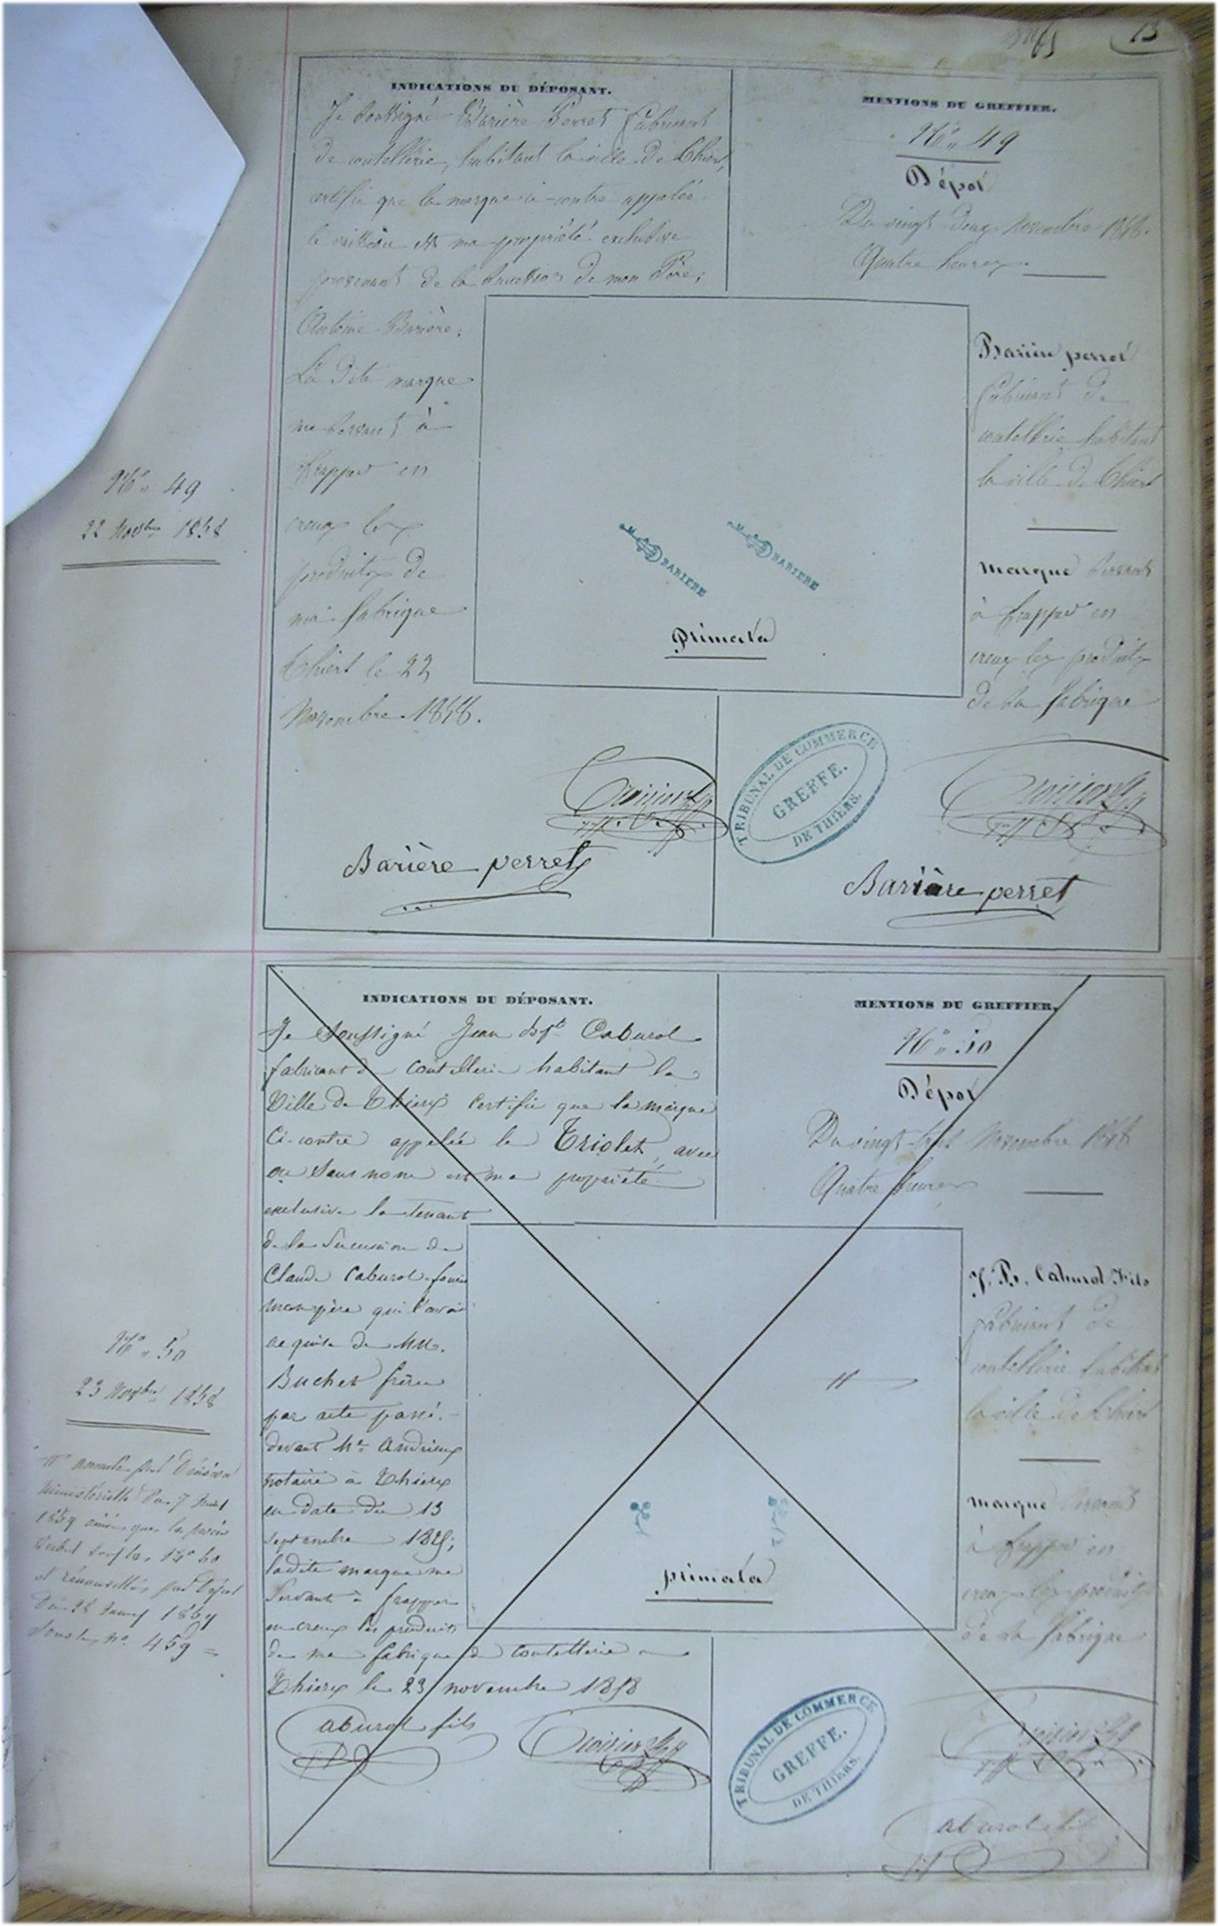 13
INDICATIONS DU DÉPOSANT.
Je soussigné Barière Perret fabricant
de coutellerie, habitant la ville de Thiers,
certifie que la marque ci-contre appelée
le est ma propriété exclusive
provenant de la succession de mon Père,
Antoine Barière.
La dite marque
me servant à
frapper en
creux les
produits de
ma fabrique
Thiers le 22
Novembre 1858.
Barière perret
MENTIONS DU GREFFIER.
No. 49
Dépot
Du vingt deux novembre 1858.
Quatre heures.
Barière perret
fabricant de
coutellerie habitant
la ville de Thiers
marque servant
à frapper en
creux les produits
de sa fabrique
Barière perret
BARIERE
BARIERE
primata
TRIBUNAL DE COMMERCE
GREFFE.
DE THIERS.
No. 49
22 Novbre 1858
INDICATIONS DU DÉPOSANT.
Je Soussigné Jean Bpte Caburol
fabricant de Coutellerie habitant la
Ville de Thiers Certifie que la marque
Ci-contre appelée le Triolet, avec
ou Sans nom est ma propriété
exclusive la tenant
de la Sucession de
Claude Caburol
mon père qui l'avait
acquise de MM.
Buchet frères
par acte passé
devant Me Andrieux
notaire à Thiers
en date du 13
Septembre
ladite marque me
Servant à frapper
en creux les produits
de ma fabrique de Coutellerie
Thiers le 23 novembre 1858
Caburol fils
MENTIONS DU GREFFIER.
No. 50
Dépot
Du vingt novembre 1858
Quatre heures
J. B. Caburol Fils
fabricant de
coutellerie habitant
la ville de Thiers
marque servant
à frapper en
creux les produits
de sa fabrique
Caburol fils
primata
TRIBUNAL DE COMMERCE
GREFFE.
DE THIERS.
No. 50
23 Novbre 1858
annulé par Décision
Ministérielle Du 7
1859 ainsi que le
No 60
et renouvellé par Dépot
Du 28 1869
Sous le No. 459